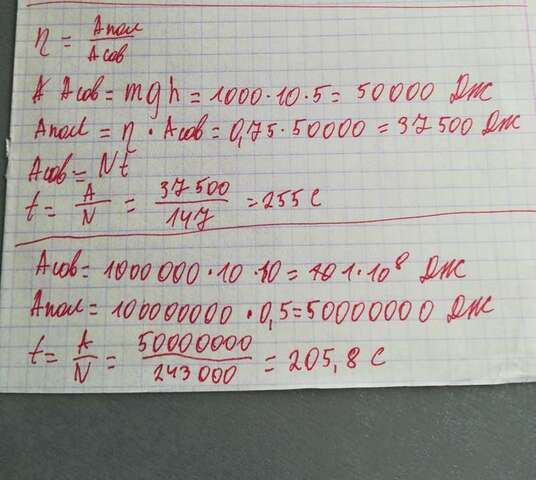 η = Aпол/Aсов
Aсов = mgh = 1000·10·5 = 50000 Дж
Aпол = η · Aсов = 0,75·50000 = 37500 Дж
Aсов = Nt
t = A/N = 37500/147 = 255 с
Aсов = 1000000·10·10 = 1·10⁸ Дж
Aпол = 100000000 · 0,5 = 50000000 Дж
t = A/N = 50000000/243000 = 205,8 с